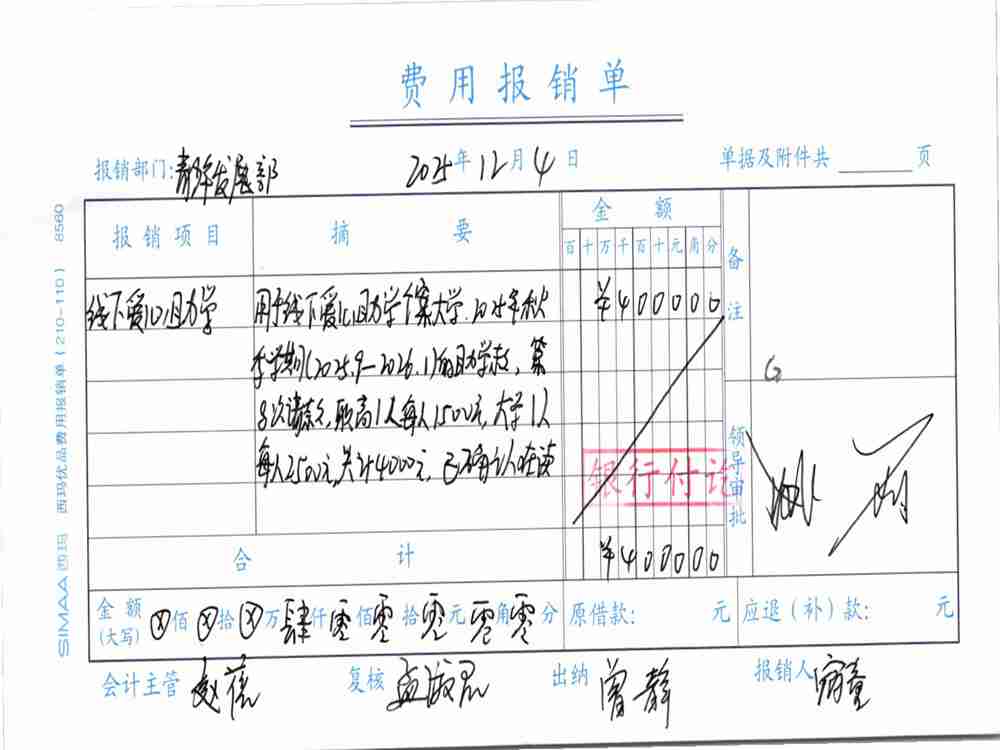 费用报销单
报销部门:青年发展部 2025年12月4日 单据及附件共 页
报销项目 摘要 金额 备注
百十万千百十元角分
线下爱心助学 用于线下爱心助学个案大学.2025年秋 ¥400000
季学期(2025.9-2026.1)的助学款,第
8次请款,职高1人每人1500元,大学1人
每人2500元,共计4000元,已确认在读
银行付讫
G
领导审批
合计 ¥400000
金额(大写) ⊗佰⊗拾⊗万肆仟零佰零拾零元零角零分 原借款: 元 应退(补)款: 元
会计主管 赵蓓 复核 出纳 曾静 报销人
SIMAA 西玛 西玛优品费用报销单(210-110) 8560